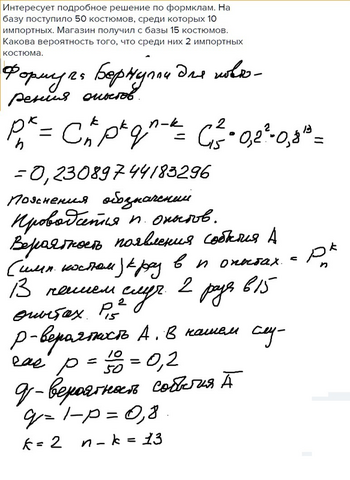 Интересует подробное решение по формклам. На
базу поступило 50 костюмов, среди которых 10
импортных. Магазин получил с базы 15 костюмов.
Какова вероятность того, что среди них 2 импортных
костюма.
Формула Бернулли для повто-
рения опытов.
Pₙᵏ = Cₙᵏ pᵏ qⁿ⁻ᵏ = C₁₅² · 0,2² · 0,8¹³ =
= 0,23089744183296
Пояснения обозначений
Проводится n опытов.
Вероятность появления события A
(имп. костюм) k раз в n опытах = Pₙᵏ
В нашем случ. 2 раза в 15
опытах P₁₅²
p - вероятность A. В нашем слу-
чае p = 10/50 = 0,2
q - вероятность события A̅
q = 1 - p = 0,8
k = 2 n - k = 13